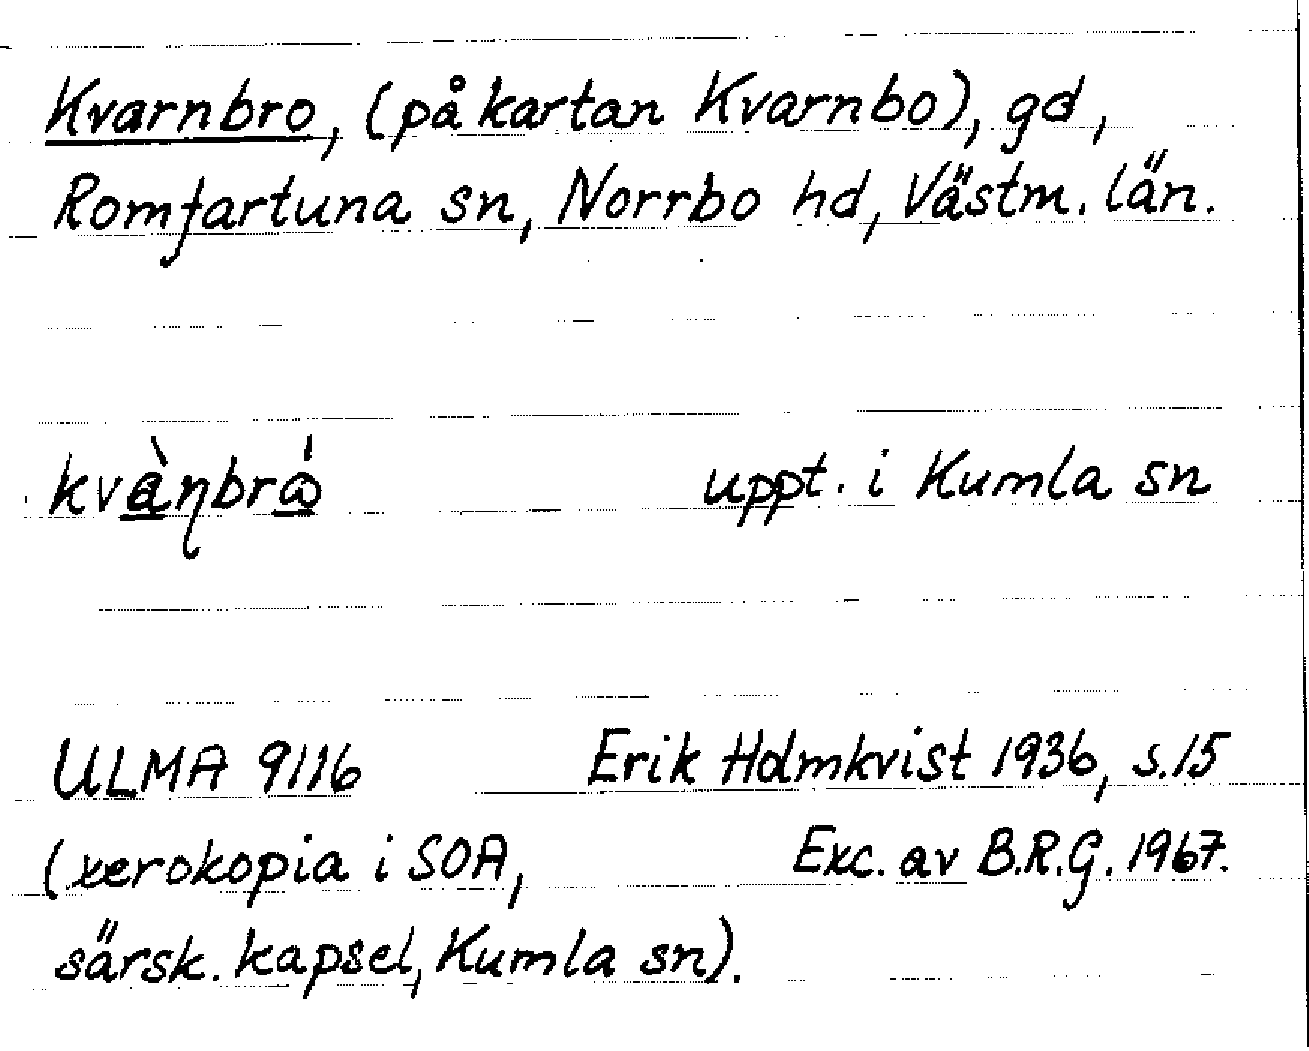 Kvarnbro, (på kartan Kvarnbo), gd,
Romfartuna sn, Norrbo hd, Västm. län.
kvàɳbrǻ uppt. i Kumla sn
ULMA 9116 Erik Holmkvist 1936, s.15
(xerokopia i SOA, Exc. av B.R.G. 1967.
särsk. kapsel, Kumla sn).